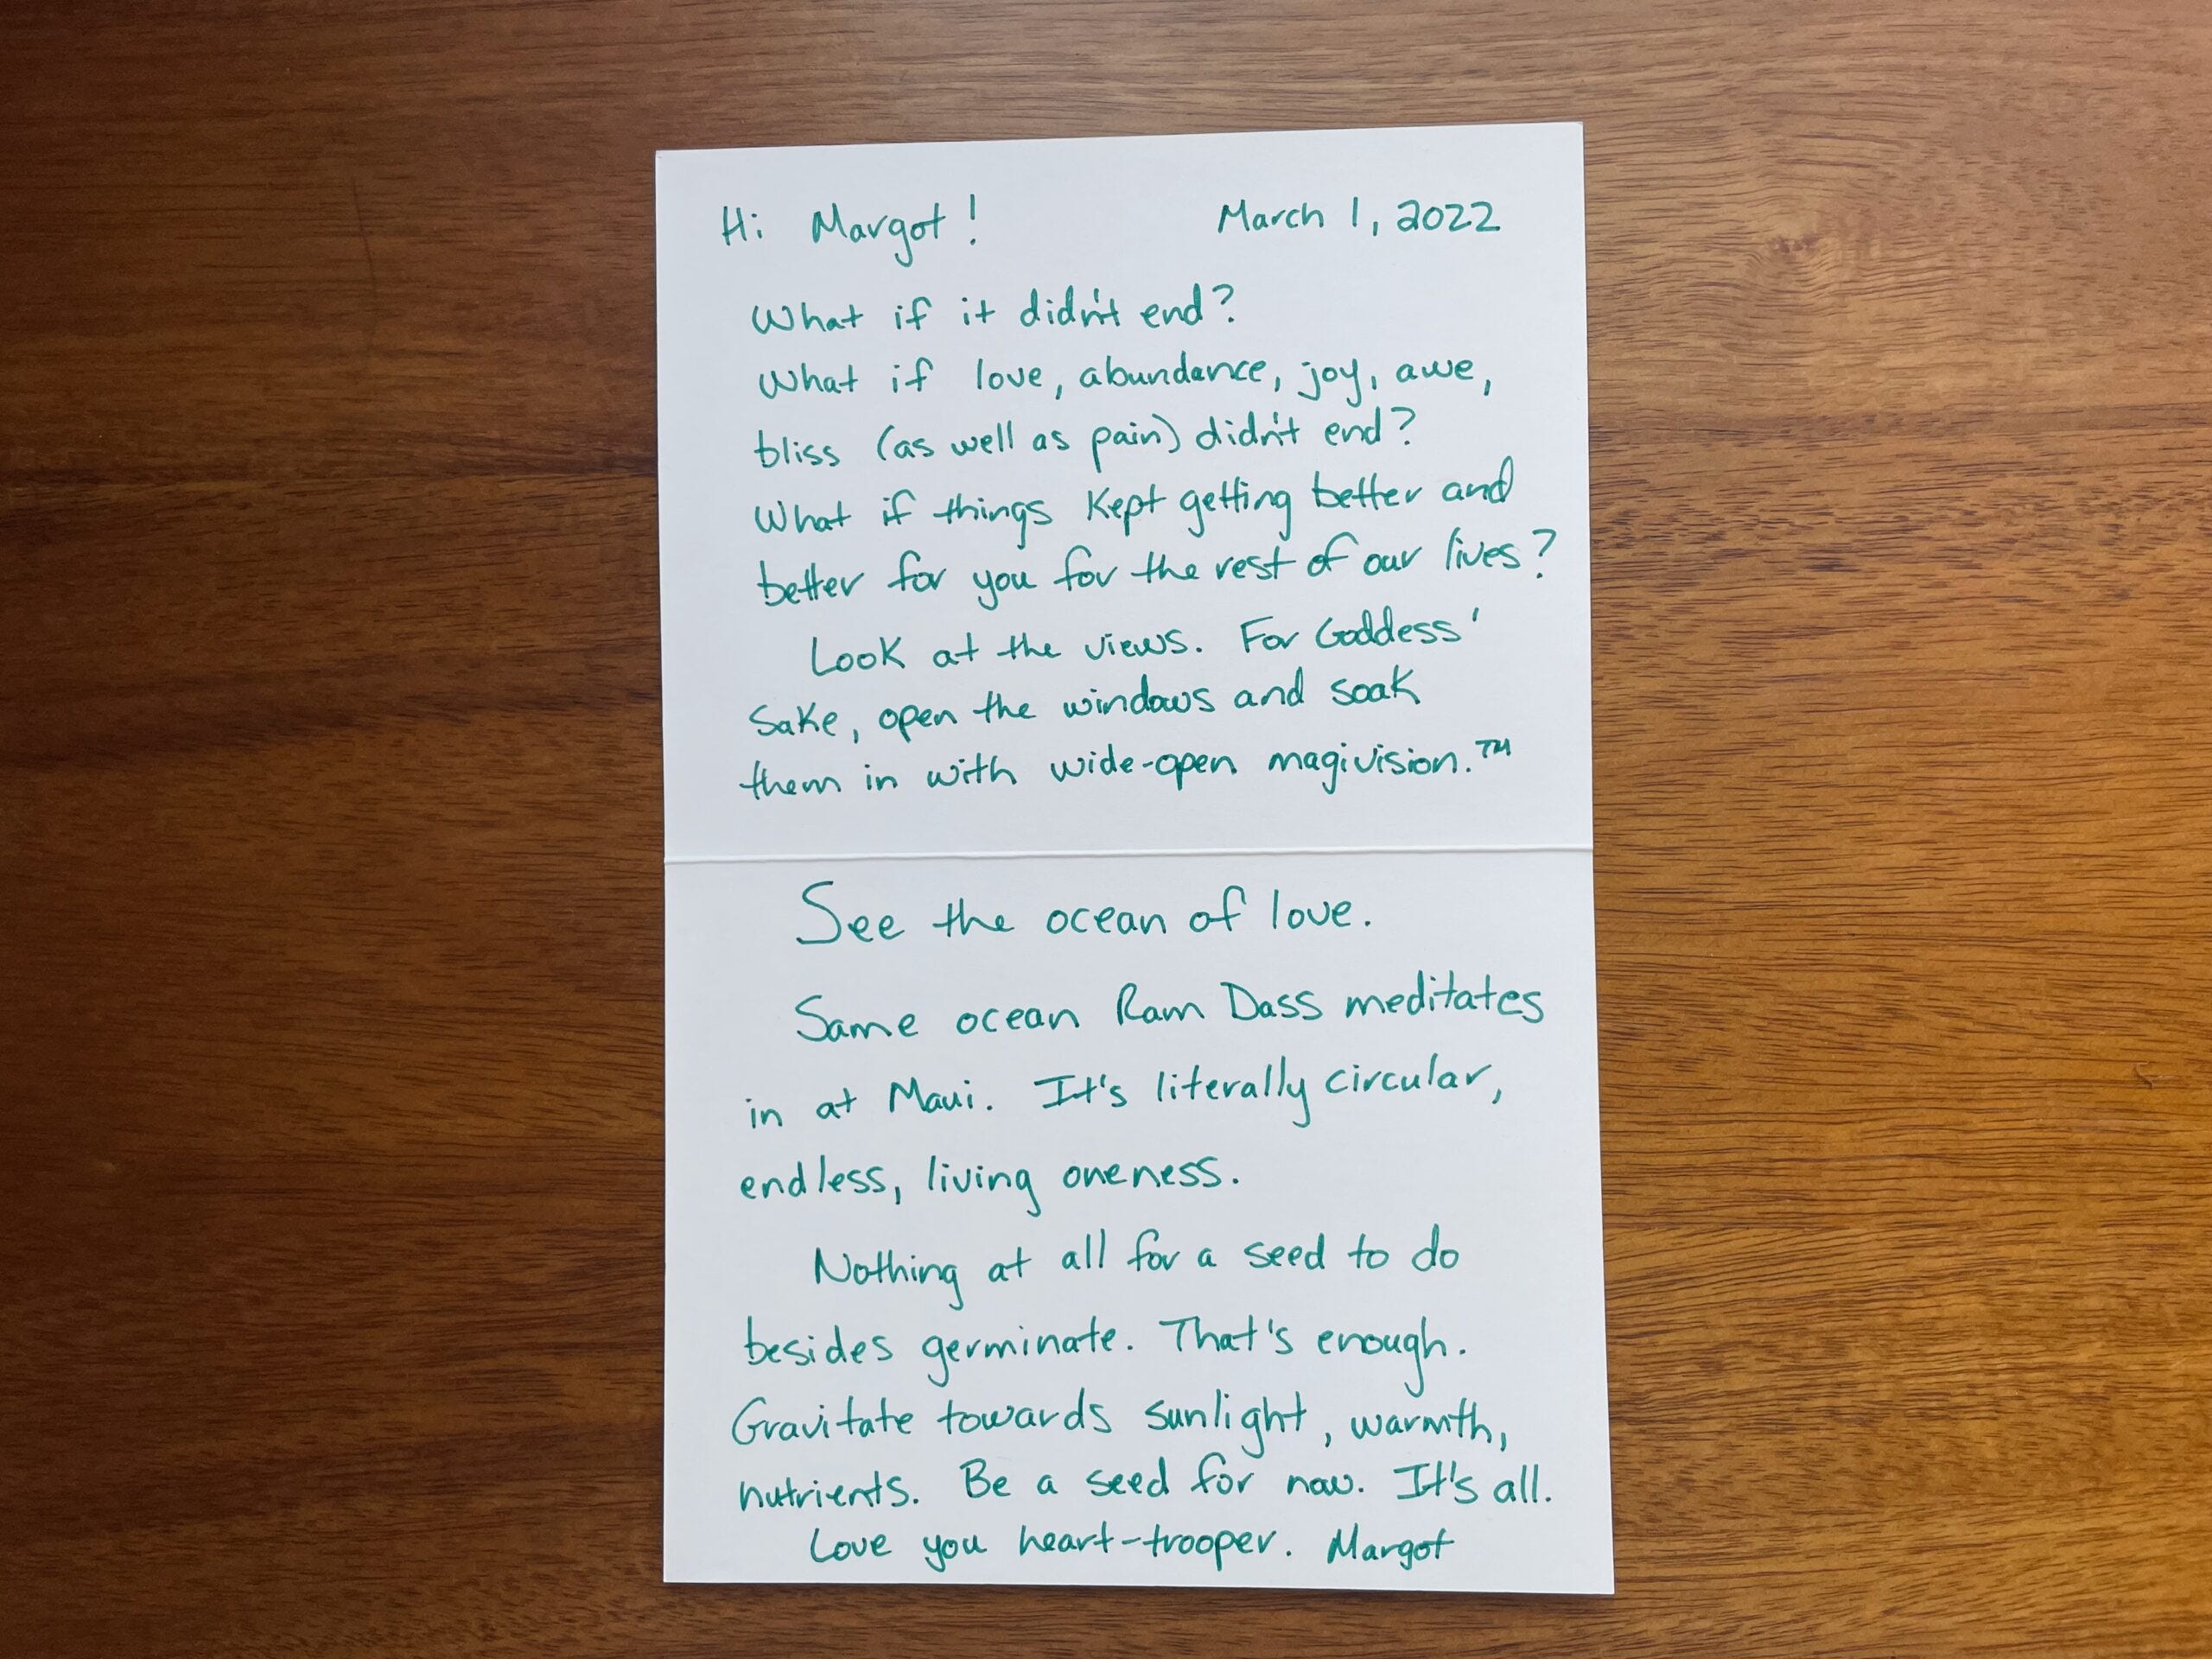 Hi Margot! March 1, 2022
What if it didn't end?
What if love, abundance, joy, awe,
bliss (as well as pain) didn't end?
What if things Kept getting better and
better for you for the rest of our lives?
Look at the views. For Goddess'
Sake, open the windows and soak
them in with wide-open magivision.™
See the ocean of love.
Same ocean Ram Dass meditates
in at Maui. It's literally circular,
endless, living oneness.
Nothing at all for a seed to do
besides germinate. That's enough.
Gravitate towards sunlight, warmth,
nutrients. Be a seed for now. It's all.
Love you heart-trooper. Margot